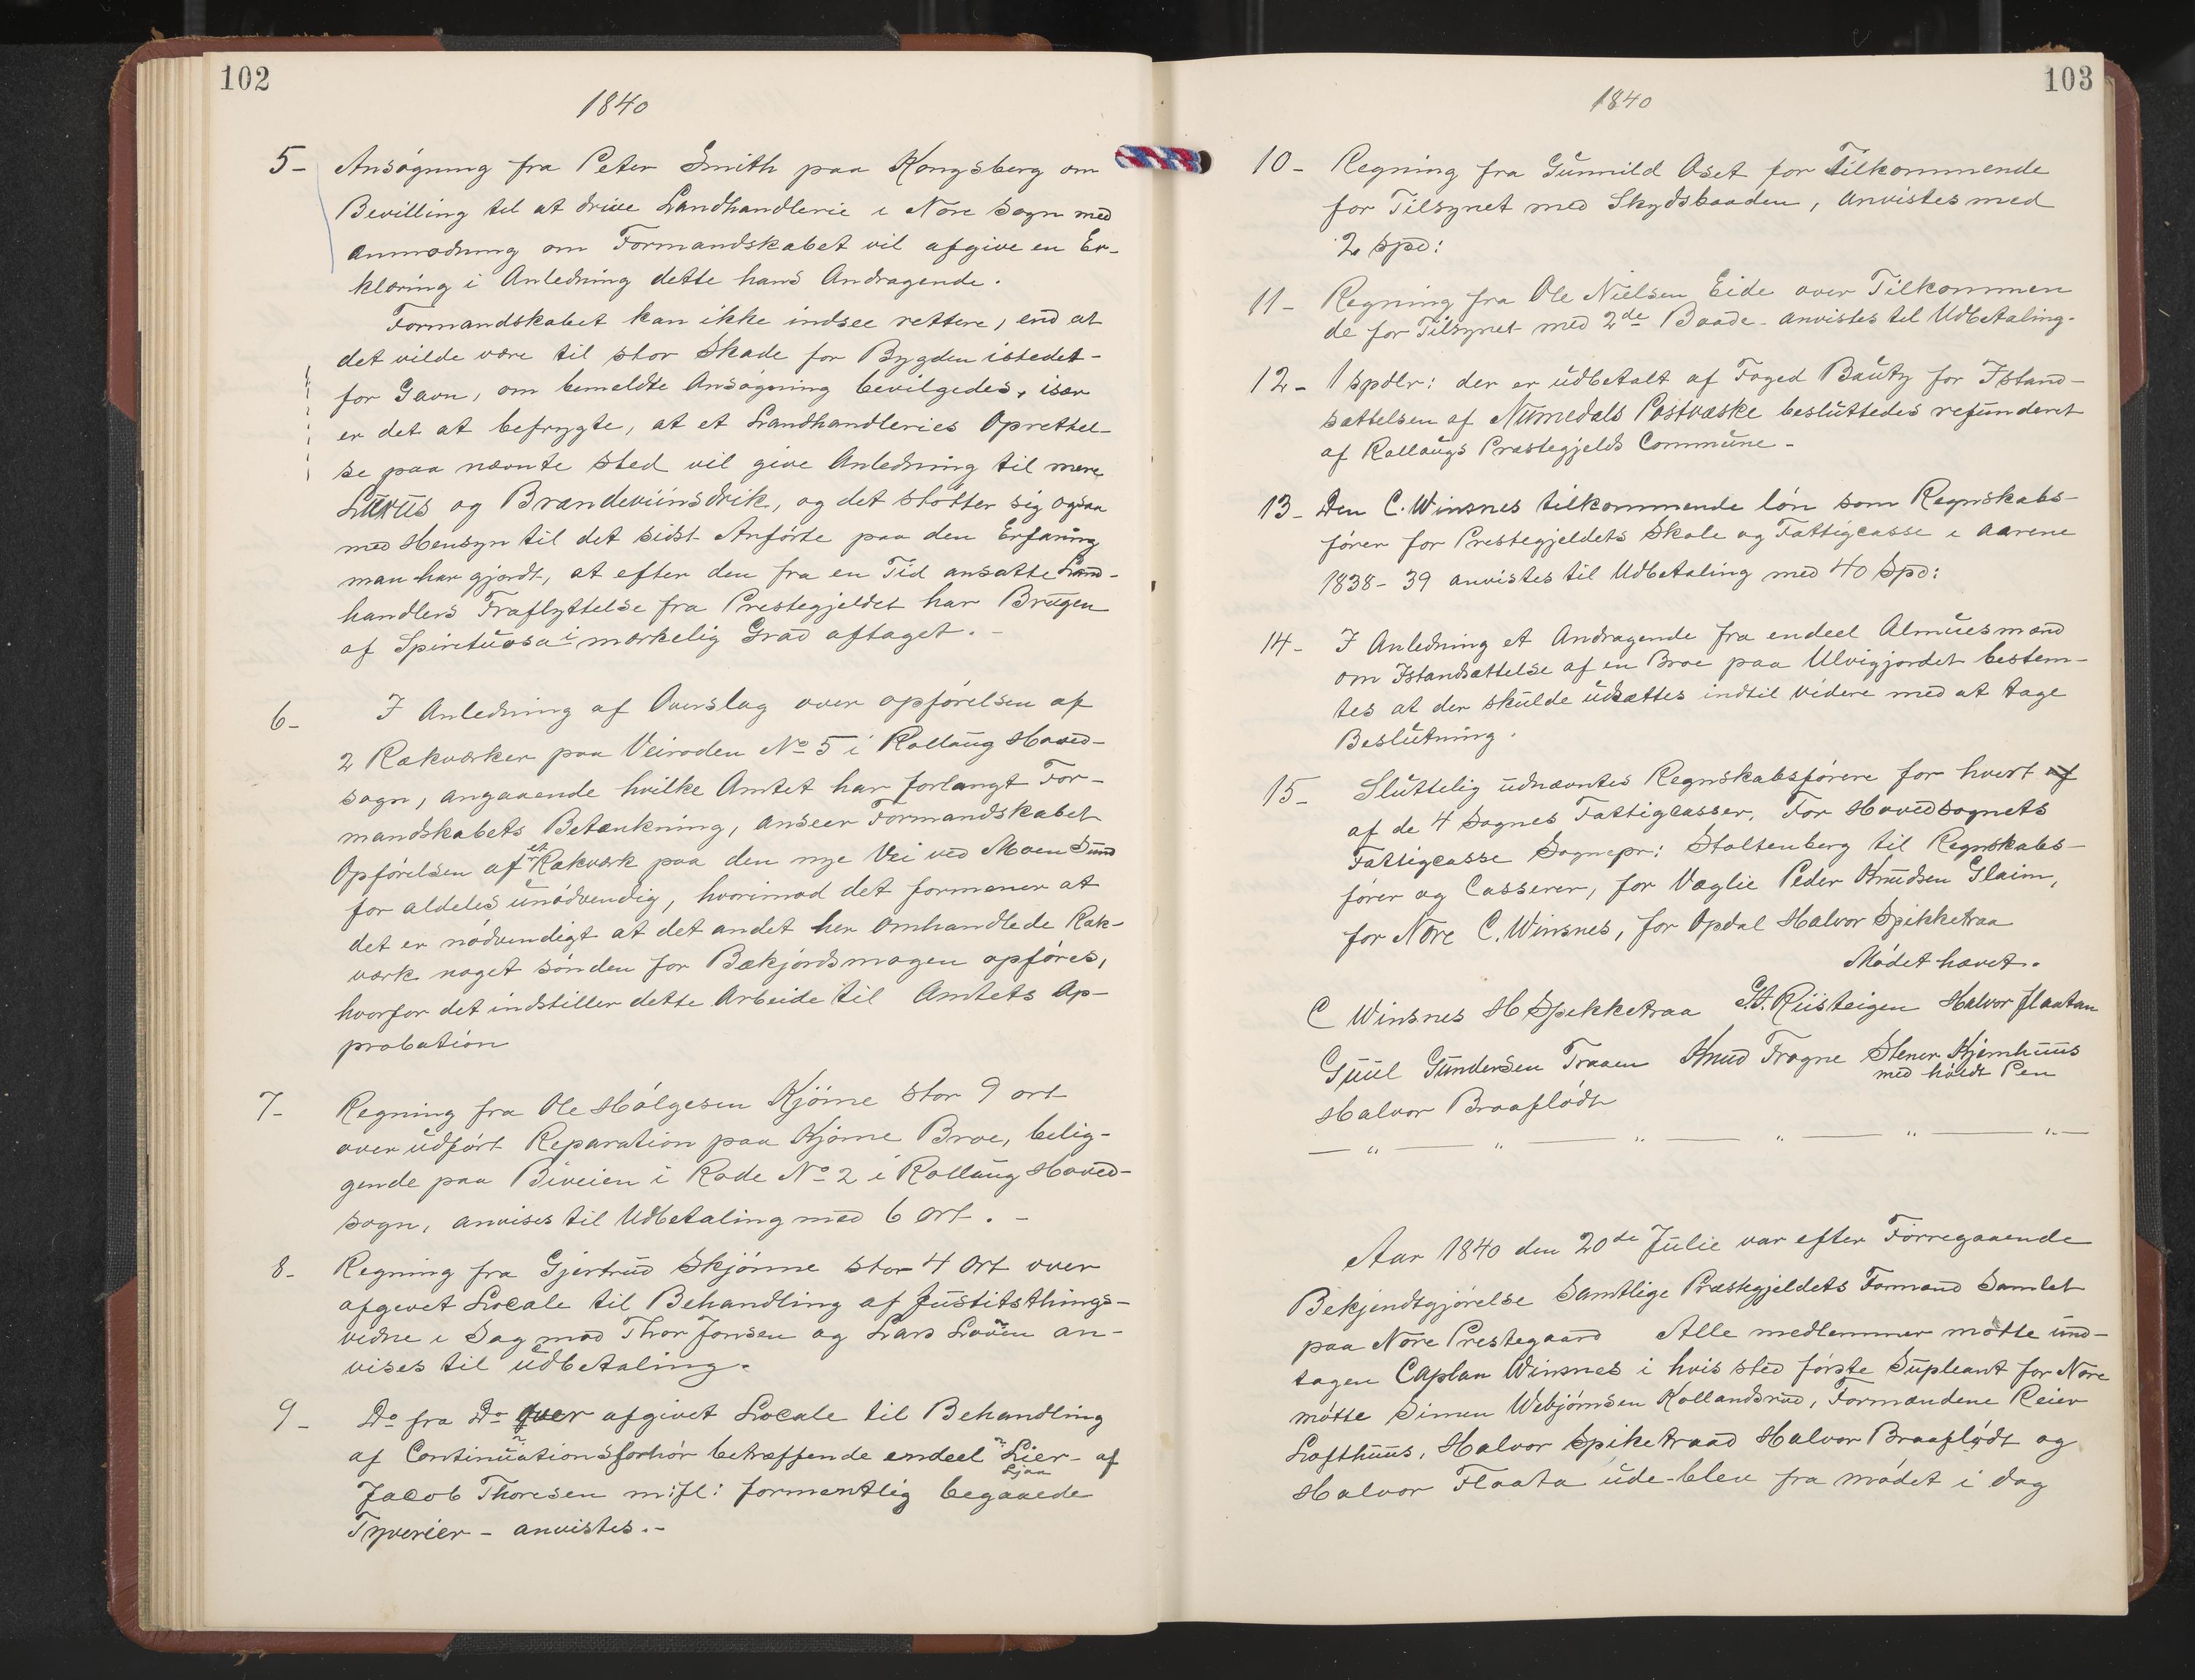 102
1840
5- Ansøgning fra Peter Smith paa Kongsberg om
Bevilling til at drive Landhandlerie i Nore Sogn med
anmodning om Formandskabet vil afgive en Er-
klæring i Anledning dette hans Andragende.
Formandskabet kan ikke indsee rettere, end at
det vilde være til stor Skade for Bygden istedet-
for Gavn, om bemeldte Ansøgning bevilgedes, især
er det at befrygte, at et Landhandleries Oprettel-
se paa nævnte Sted vil give Anledning til mere
Luxus og Brændeviinsdrik, og det støtter sig ogsaa
med Hensyn til det sidst Anførte paa den Erfaring
man har gjordt, at efter den fra en Tid ansatte Land-
handlers Fraflyttelse fra Prestegjeldet har Brugen
af Spirituosa i mærkelig Grad aftaget. -
6- I Anledning af Overslag over opførelsen af
2 Rækværker paa Veiroden No 5 i Rollaug Hoved-
sogn, angaaende hvilke Amtet har forlangt For-
mandskabets Betænkning, anseer Formandskabet
Opførelsen af et Rækværk paa den nye Vei ved Moen Sund
for aldeles unødvendig, hvorimod det formener at
det er nødvendigt at det andet her omhandlede Ræk-
værk noget sønden for Bækjordsmogen opføres,
hvorfor det indstiller dette Arbeide til Amtets Ap-
probation
7- Regning fra Ole Hølgesen Kjöme stor 9 ort
over udført Reparation paa Kjöme Broe, belig-
gende paa Biveien i Rode No 2 i Rollaug Hoved-
sogn, anvises til Udbetaling med 6 ort. -
8- Regning fra Gjertrud Skjönne stor 4 Ort over
afgivet Locale til Behandling af Justitsthings-
vidne i Sag mod Thor Jonsen og Lars Loven an-
vises til udbetaling.
9- Do fra Do over afgivet Locale til Behandling
af Continuationsforhør betræffende endeel Lier- af
Ljaa
Jacob Thoresen m:fl: formentlig begaaede
Tyverier - anvistes.-
103
1840
10- Regning fra Gunnild Aset for Tilkommende
for Tilsynet med Skydsbaaden, anvistes med
2 Spd:
11- Regning fra Ole Nielsen Eide over Tilkommen
de for Tilsynet med 2de Baade - anvistes til Udbetaling.
12- 1 Spdlr: der er udbetalt af Foged Bautz for Istand-
sættelsen af Numedals Postvæske besluttedes refunderet
af Rollaugs Præstegjelds Commune -
13- Den C. Winsnes tilkommende løn som Regnskabs-
fører for Prestegjeldets Skole og Fattigcasse i Aarene
1838-39 anvistes til Udbetaling med 40 Spd:
14- I Anledning et Andragende fra endeel Almuesmænd
om Istandsættelse af en Broe paa Ulvigjordet bestem-
tes at der skulde udsættes indtil videre med at tage
Beslutning.
15- Sluttelig udnævntes Regnskabsførere for hvert af
af de 4 Sognes Fattigcasser. For Hovedsognets
Fattigcasse Sognepr: Stoltenberg til Regnskabs-
fører og Casserer, for Væglie Peder Knudsen Glaim,
for Nore C. Winsnes, for Opdal Halvor Spikketraa
Mødet hævet.
C Winsnes H Spikketraa G.G. Riisteigen Halvor Flaatan
Guul Gundersen Traaen Knud Frogne Stener Kjemhuus
med holdt Pen
Halvor Braafladt
— " — " — " — " — " — " —
Aar 1840 den 20de Julie var efter Forregaaende
Bekjendtgjørelse Samtlige Præstegjeldets Formænd Samlet
paa Nore Prestegaard Alle medlemmer møtte und-
tagen Caplan Winsnes i hvis sted første Supleant for Nore
møtte Simen Webjørnsen Kollandsrud, Formændene Reier
Lofthuus, Halvor Spiketraad Halvor Braaflødt og
Halvor Flaata ude-blev fra mødet i dag